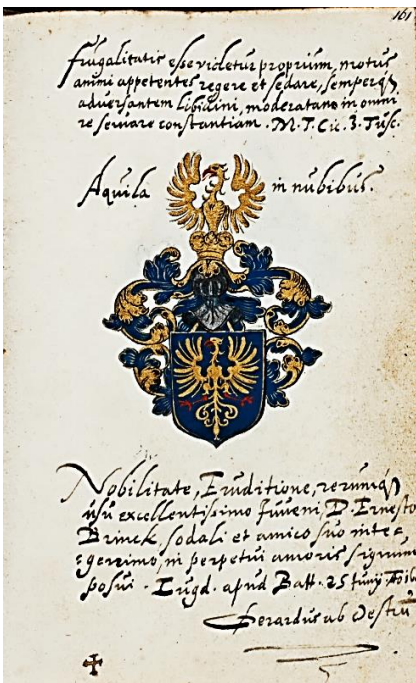 161
frugalitatis esse videtur proprium, motus
animi appetentes regere et sedare, semperq
adversantem libidini, moderatam in omni
re servare constantiam. M. T. Cic. 3. Tusc.
Aquila in nubibus.
Nobilitate, Eruditione, rerumq
usu excellentissimo Juveni, D. Ernesto
Brinck, sodali et amico suo inte=
=gerrimo, in perpetui amoris signum
posui. Lugd. apud Batt. 25 Junij
Gerardus ab